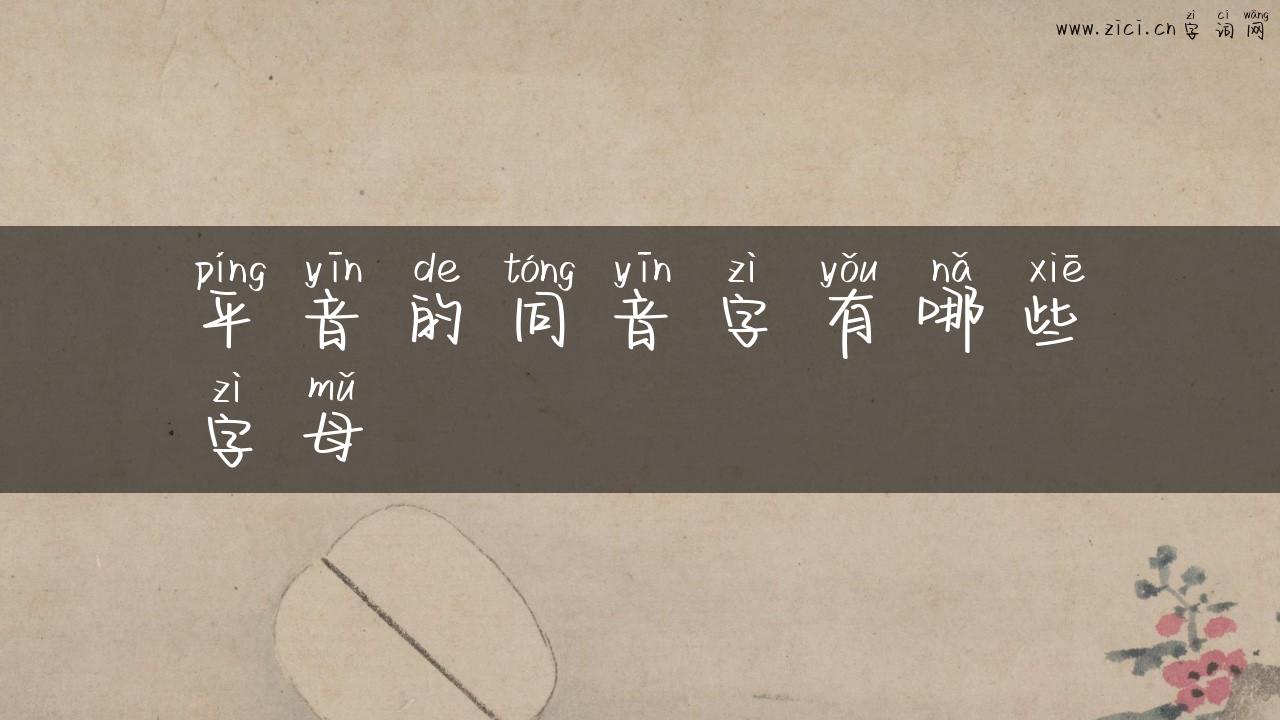 zì cí wǎng
www.zici.cn 字词网
píng yīn de tóng yīn zì yǒu nǎ xiē
平音的同音字有哪些
zì mǔ
字母